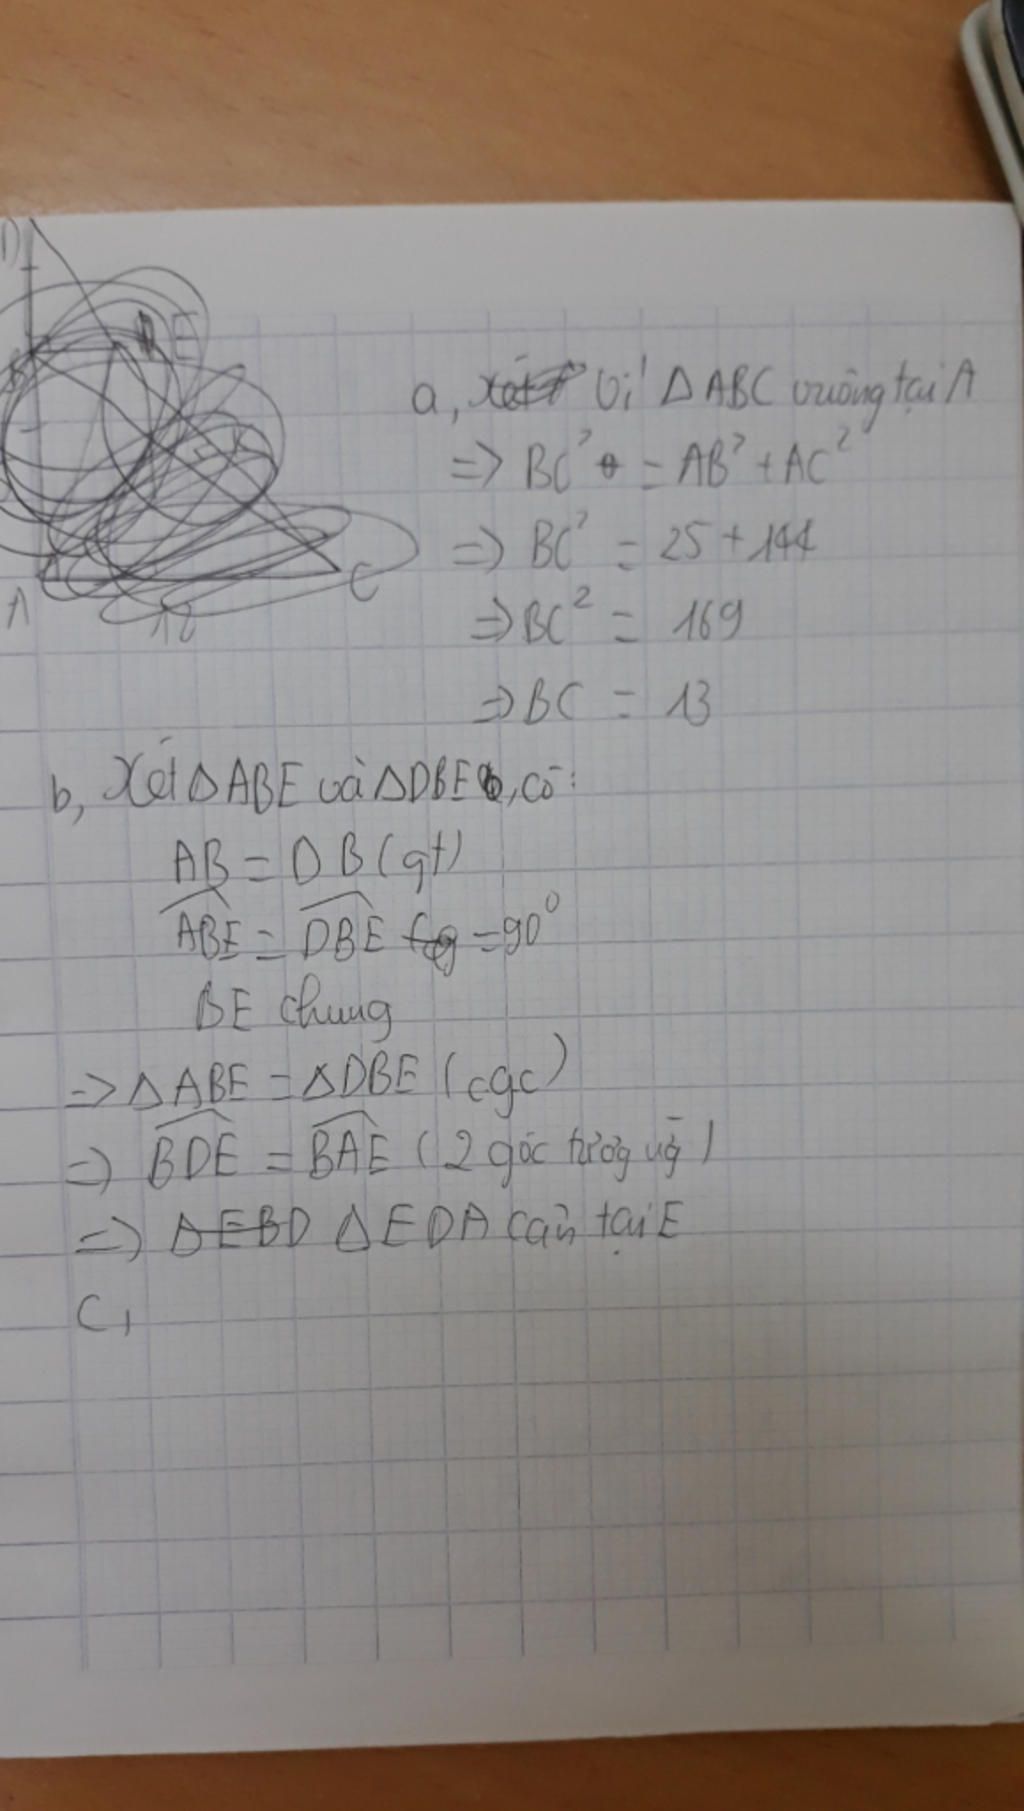 D
E
B
K
A
12
C
a, Vì ΔABC vuông tại A
=> BC² = AB² + AC²
=> BC² = 25 + 144
=> BC² = 169
=> BC = 13
b, Xét ΔABE và ΔDBE, có:
AB = DB (gt)
ABE = DBE = 90⁰
BE chung
=> ΔABE = ΔDBE (cgc)
=> BDE = BAE (2 góc tương ứg)
=> ΔEDA cân tại E
C,